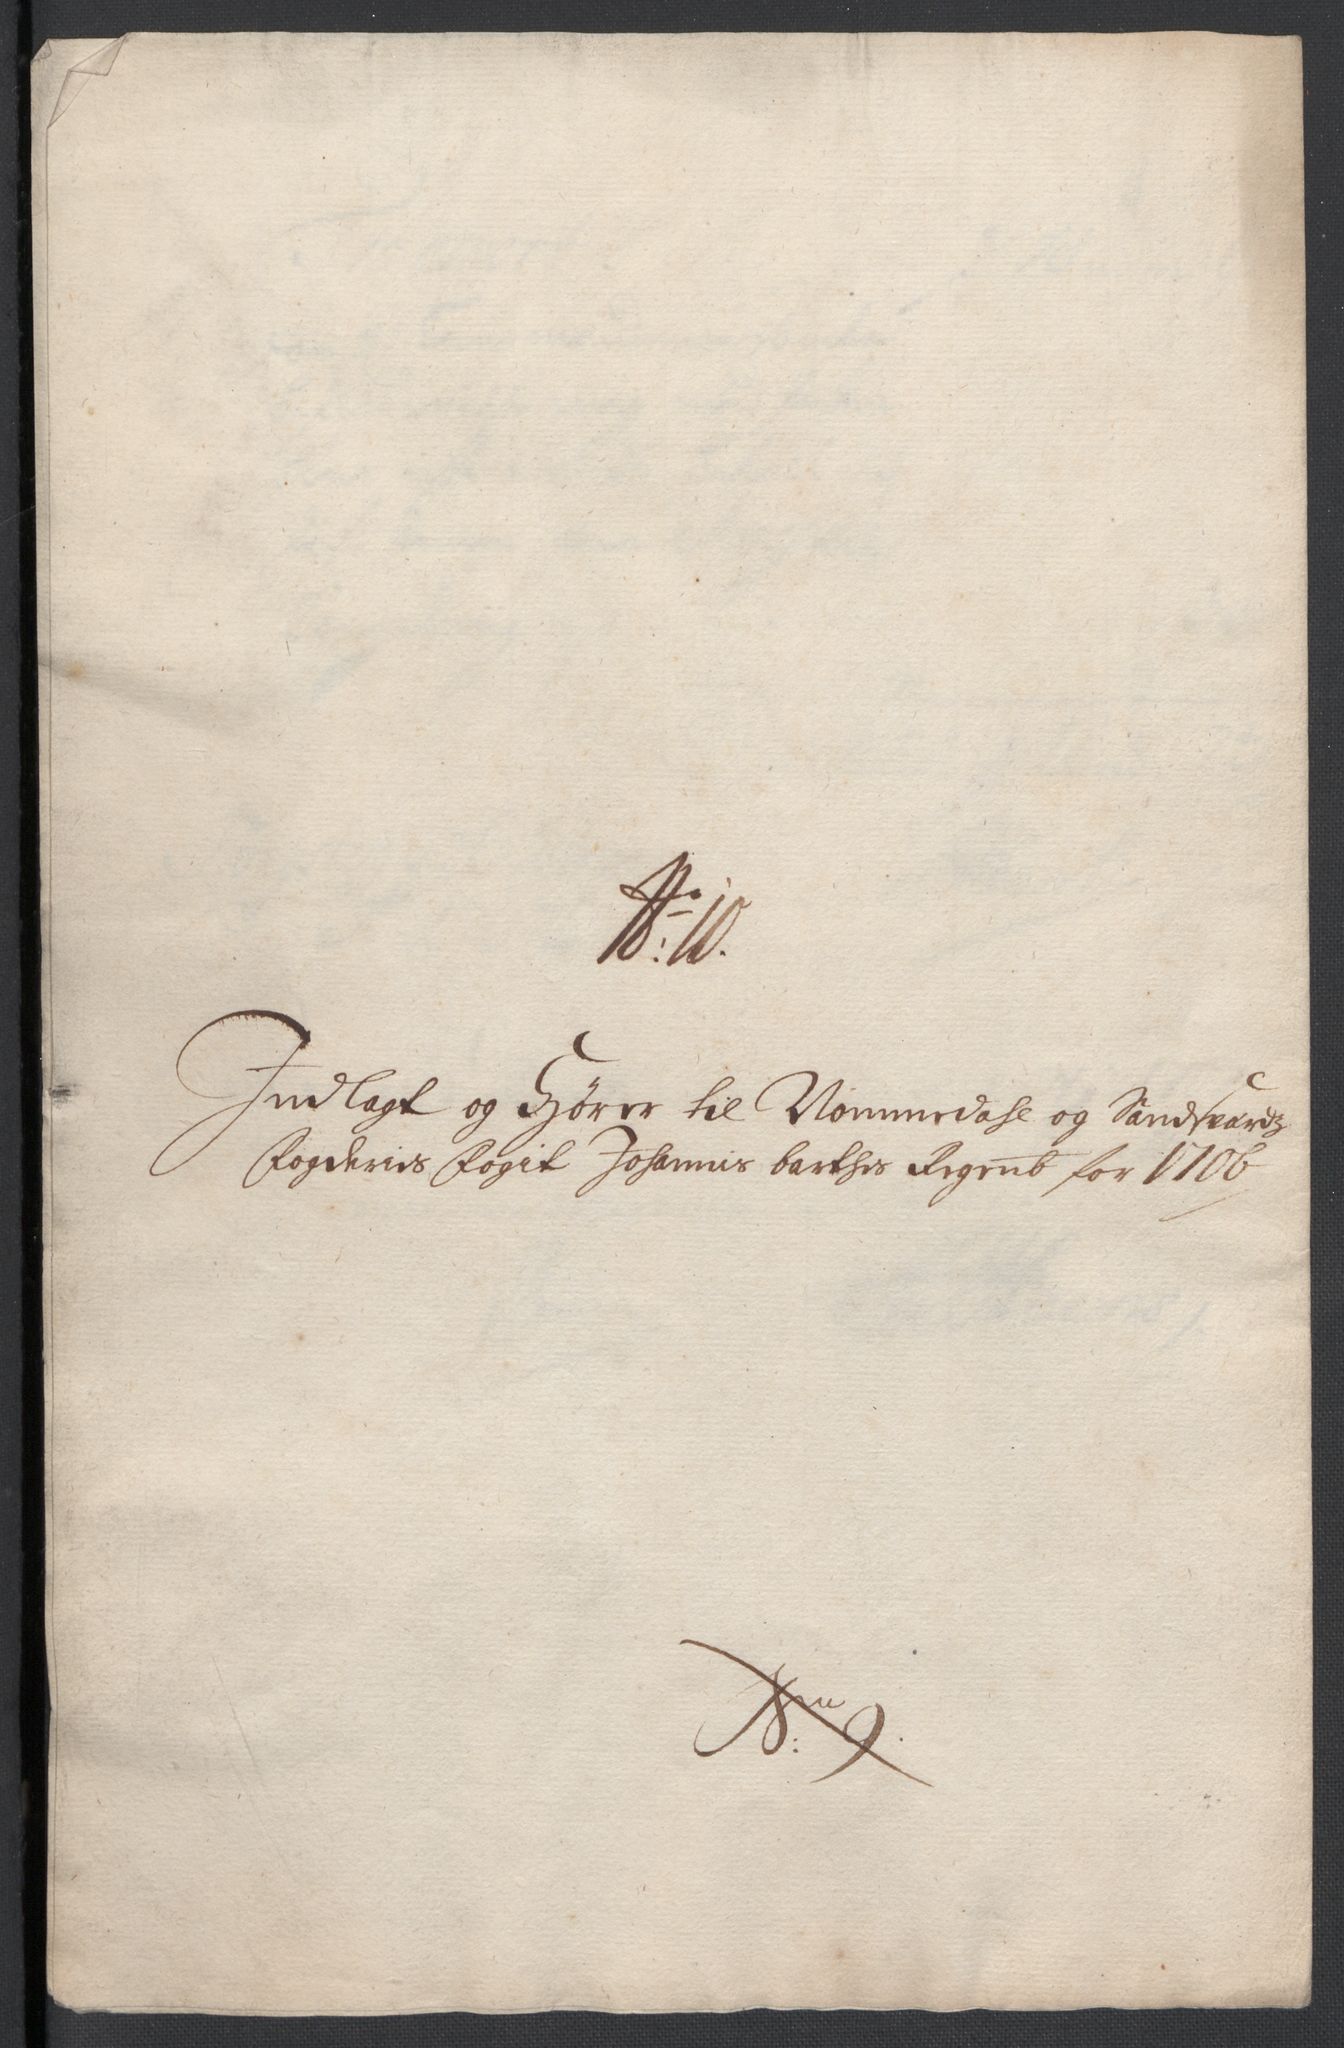 No: 10.
Indlagt og Hører til Nommedahl og Sandsværdz
Fogderies Fogit Johannis barthes Regensk for 1706
No: 9.